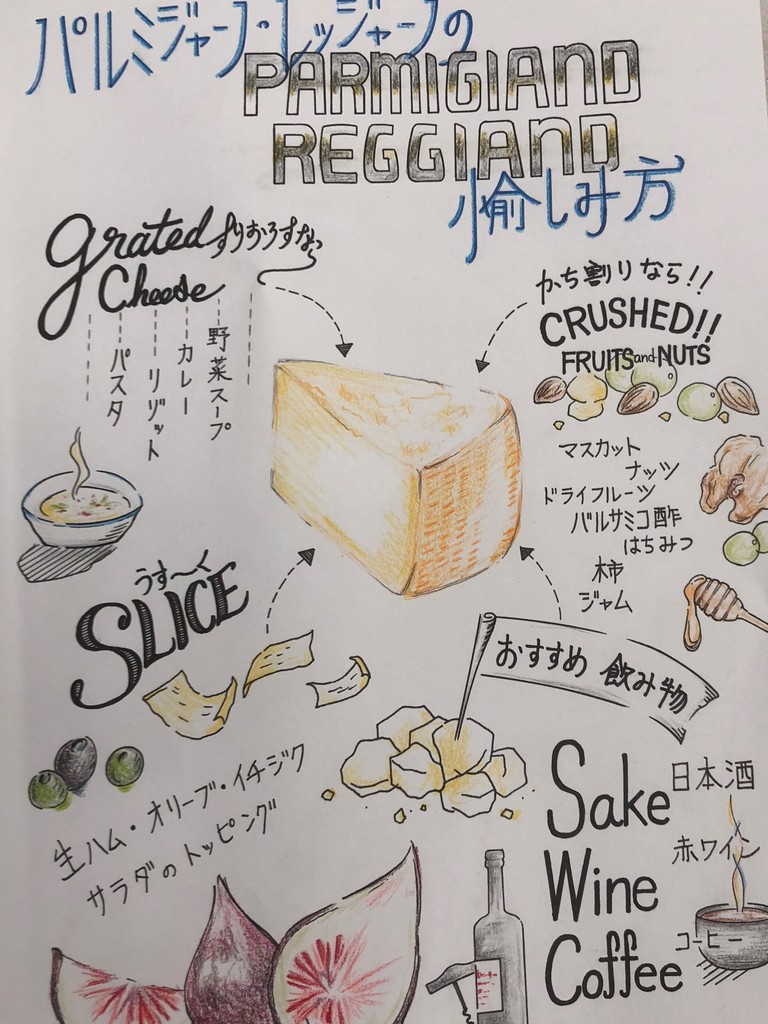 パルミジャーノ・レッジャーノの
PARMIGIANO
REGGIANO
愉しみ方
grated すりおろすなら
Cheese
パスタ
リゾット
カレー
野菜スープ
かち割りなら!!
CRUSHED!!
FRUITS and NUTS
マスカット
ナッツ
ドライフルーツ
バルサミコ酢
はちみつ
柿
ジャム
うす〜く
SLICE
生ハム・オリーブ・イチジク
サラダのトッピング
おすすめ 飲み物
Sake 日本酒
Wine 赤ワイン
Coffee コーヒー